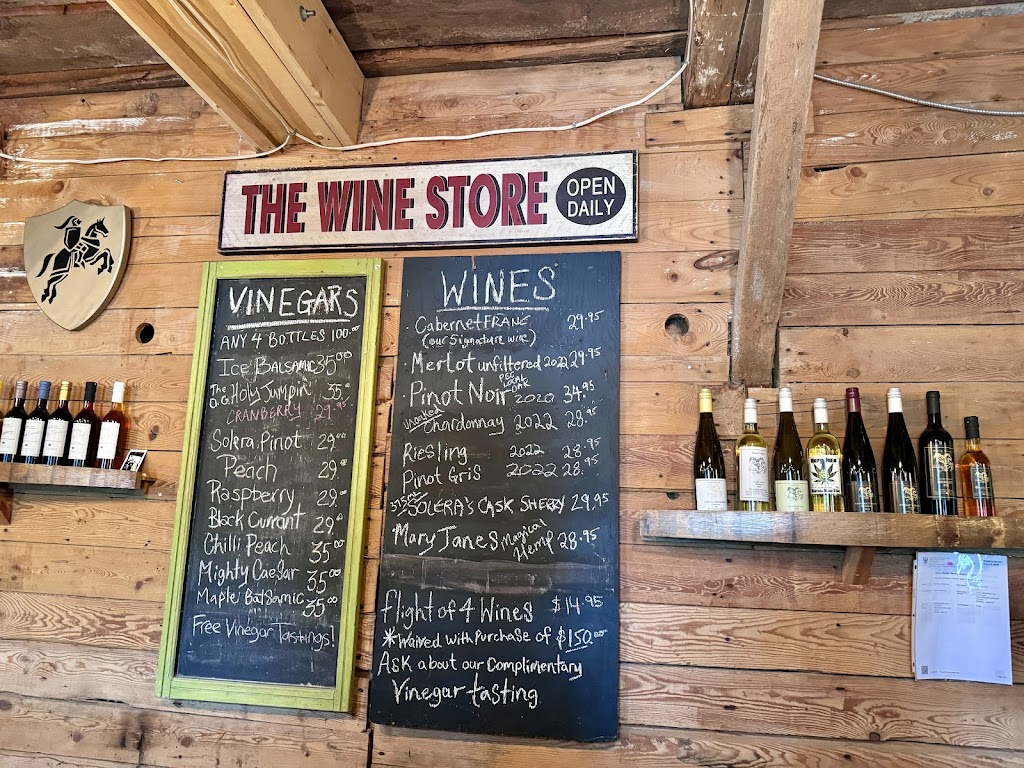 THE WINE STORE
OPEN
DAILY
VINEGARS
ANY 4 BOTTLES 100.00
ICE BALSAMIC 35.00
The O.G. Holy Jumpin' 35.00
CRANBERRY 29.95
Solera Pinot 29.00
Peach 29.00
Raspberry 29.00
Black Currant 29.00
Chilli Peach 35.00
Mighty Caesar 35.00
Maple Balsamic 35.00
Free Vinegar Tastings!
WINES
Cabernet FRANC 29.95
(our Signature wine)
Merlot unfiltered 2022 29.95
Pinot Noir PEC LOCAL OAK 2020 34.95
unoaked Chardonnay 2022 28.95
Riesling 2022 28.95
Pinot Gris 2022 28.95
375ml SOLERA'S CASK SHERRY 29.95
Mary Janes Magical Hemp 28.95
flight of 4 Wines $14.95
*Waived with purchase of $150.00
Ask about our Complimentary
Vinegar tasting